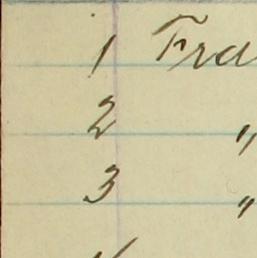 1 Fra
2 "
3 "